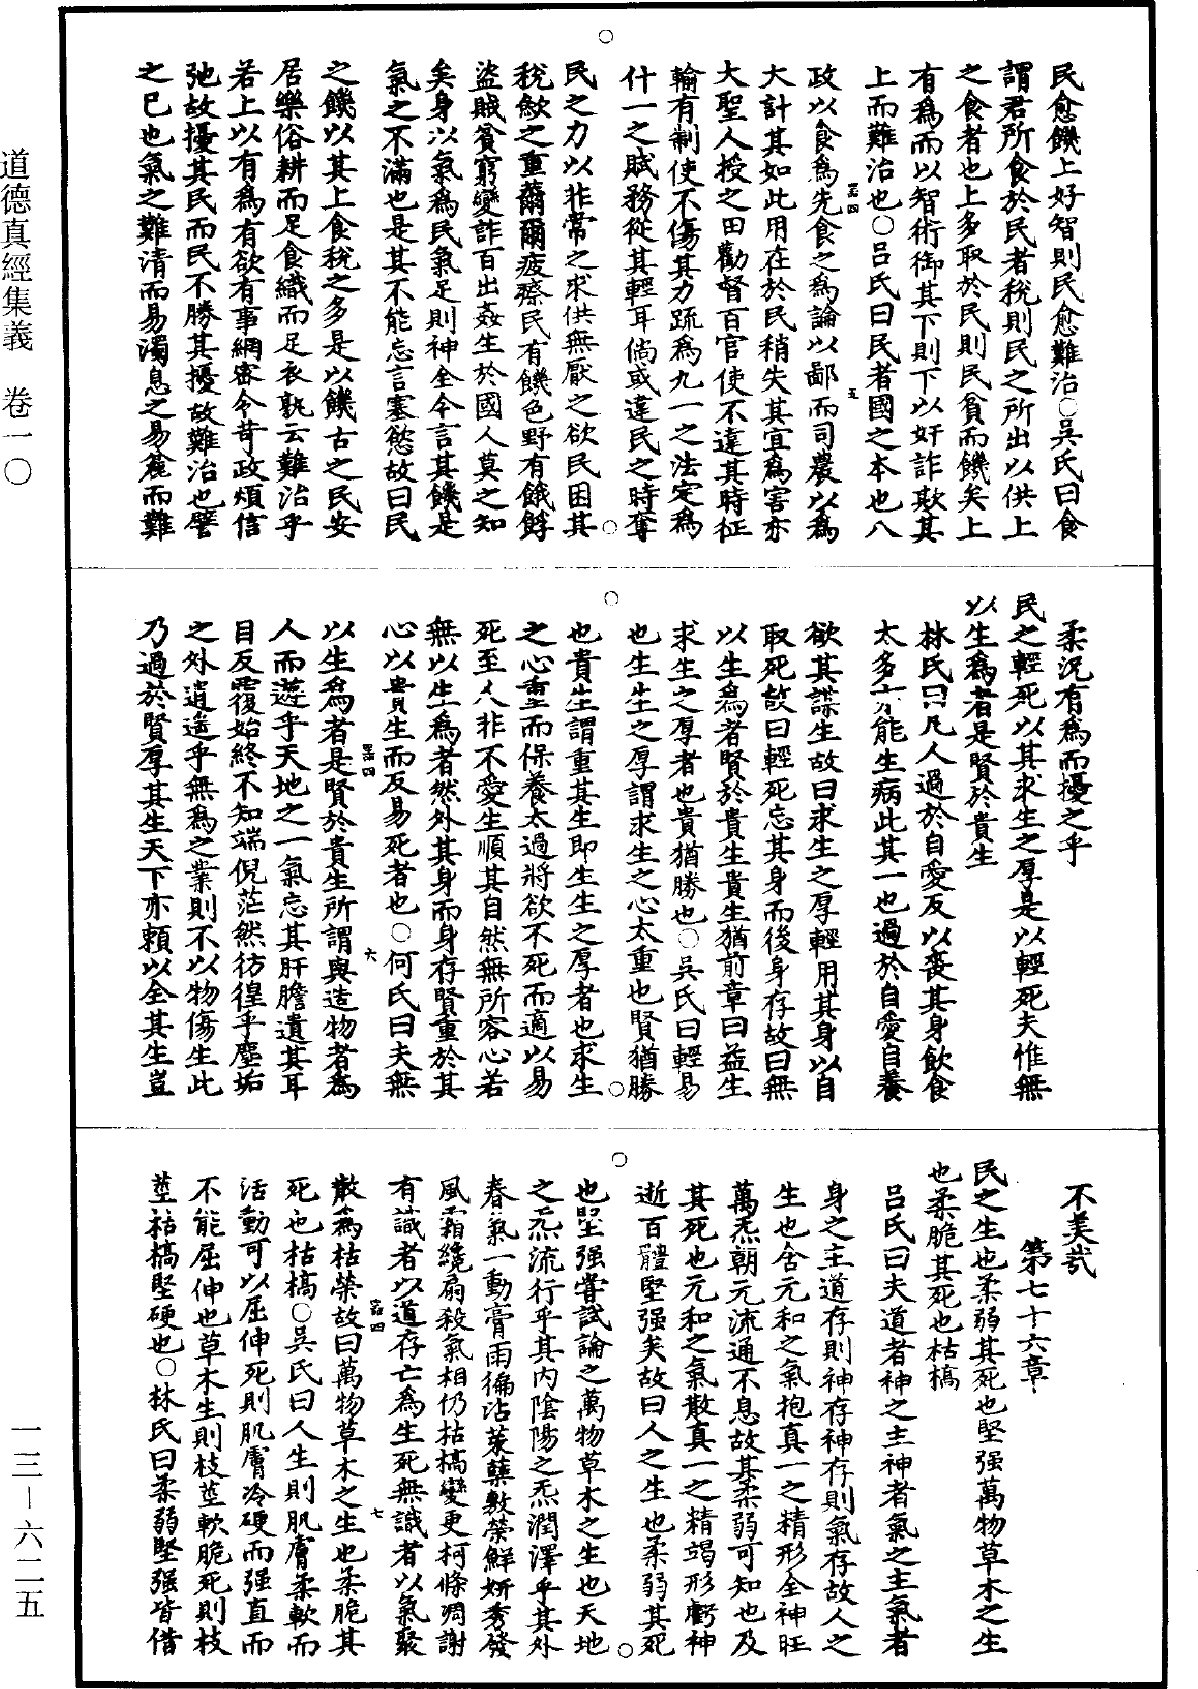 道德真經集義　卷一〇
一三－六二五
民愈饑上好智則民愈難治○吳氏曰食
謂君所食於民者稅則民之所出以供上
之食者也上多取於民則民貧而饑矣上
有為而以智術御其下則下以奸詐欺其
上而難治也○呂氏曰民者國之本也八
政以食為先食之為論以鄙而司農以為
大計其如此用在於民稍失其宜為害亦
大聖人授之田勸督百官使不違其時征
輸有制使不傷其力疏為九一之法定為
什一之賦務從其輕耳倘或違民之時奪
民之力以非常之求供無厭之欲民困其
稅斂之重薾爾疲瘵民有饑色野有餓殍
盜賊貧窮變詐百出姦生於國人莫之知
矣身以氣為民氣足則神全今言其饑是
氣之不滿也是其不能忘言塞慾故曰民
之饑以其上食稅之多是以饑古之民安
居樂俗耕而足食織而足衣孰云難治乎
若上以有為有欲有事網密令苛政煩信
弛故擾其民而民不勝其擾故難治也譬
之已也氣之難清而易濁息之易麄而難
柔況有為而擾之乎
民之輕死以其求生之厚是以輕死夫惟無
以生為者是賢於貴生
林氏曰凡人過於自愛反以喪其身飲食
太多方能生病此其一也過於自愛自養
欲其謀生故曰求生之厚輕用其身以自
取死故曰輕死忘其身而後身存故曰無
以生為者賢於貴生貴生猶前章曰益生
求生之厚者也貴猶勝也○吳氏曰輕易
也生生之厚謂求生之心太重也賢猶勝
也貴生謂重其生即生生之厚者也求生
之心重而保養太過將欲不死而適以易
死至人非不愛生順其自然無所容心若
無以生為者然外其身而身存賢重於其
心以貴生而反易死者也○何氏曰夫無
以生為者是賢於貴生所謂與造物者為
人而遊乎天地之一氣忘其肝膽遺其耳
目反覆始終不知端倪茫然彷徨乎塵垢
之外逍遙乎無為之業則不以物傷生此
乃過於賢厚其生天下亦賴以全其生豈
不美哉
第七十六章
民之生也柔弱其死也堅强萬物草木之生
也柔脆其死也枯槁
呂氏曰夫道者神之主神者氣之主氣者
身之主道存則神存神存則氣存故人之
生也含元和之氣抱真一之精形全神旺
萬炁朝元流通不息故其柔弱可知也及
其死也元和之氣散真一之精竭形虧神
逝百體堅强矣故曰人之生也柔弱其死
也堅强嘗試論之萬物草木之生也天地
之炁流行乎其內陰陽之炁潤澤乎其外
春氣一動膏雨徧沾萊蘖敷榮鮮妍秀發
風霜纔扇殺氣相仍枯槁變更柯條凋謝
有識者以道存亡為生死無識者以氣聚
散為枯榮故曰萬物草木之生也柔脆其
死也枯槁○吳氏曰人生則肌膚柔軟而
活動可以屈伸死則肌膚冷硬而强直而
不能屈伸也草木生則枝莖軟脆死則枝
莖枯槁堅硬也○林氏曰柔弱堅强皆借